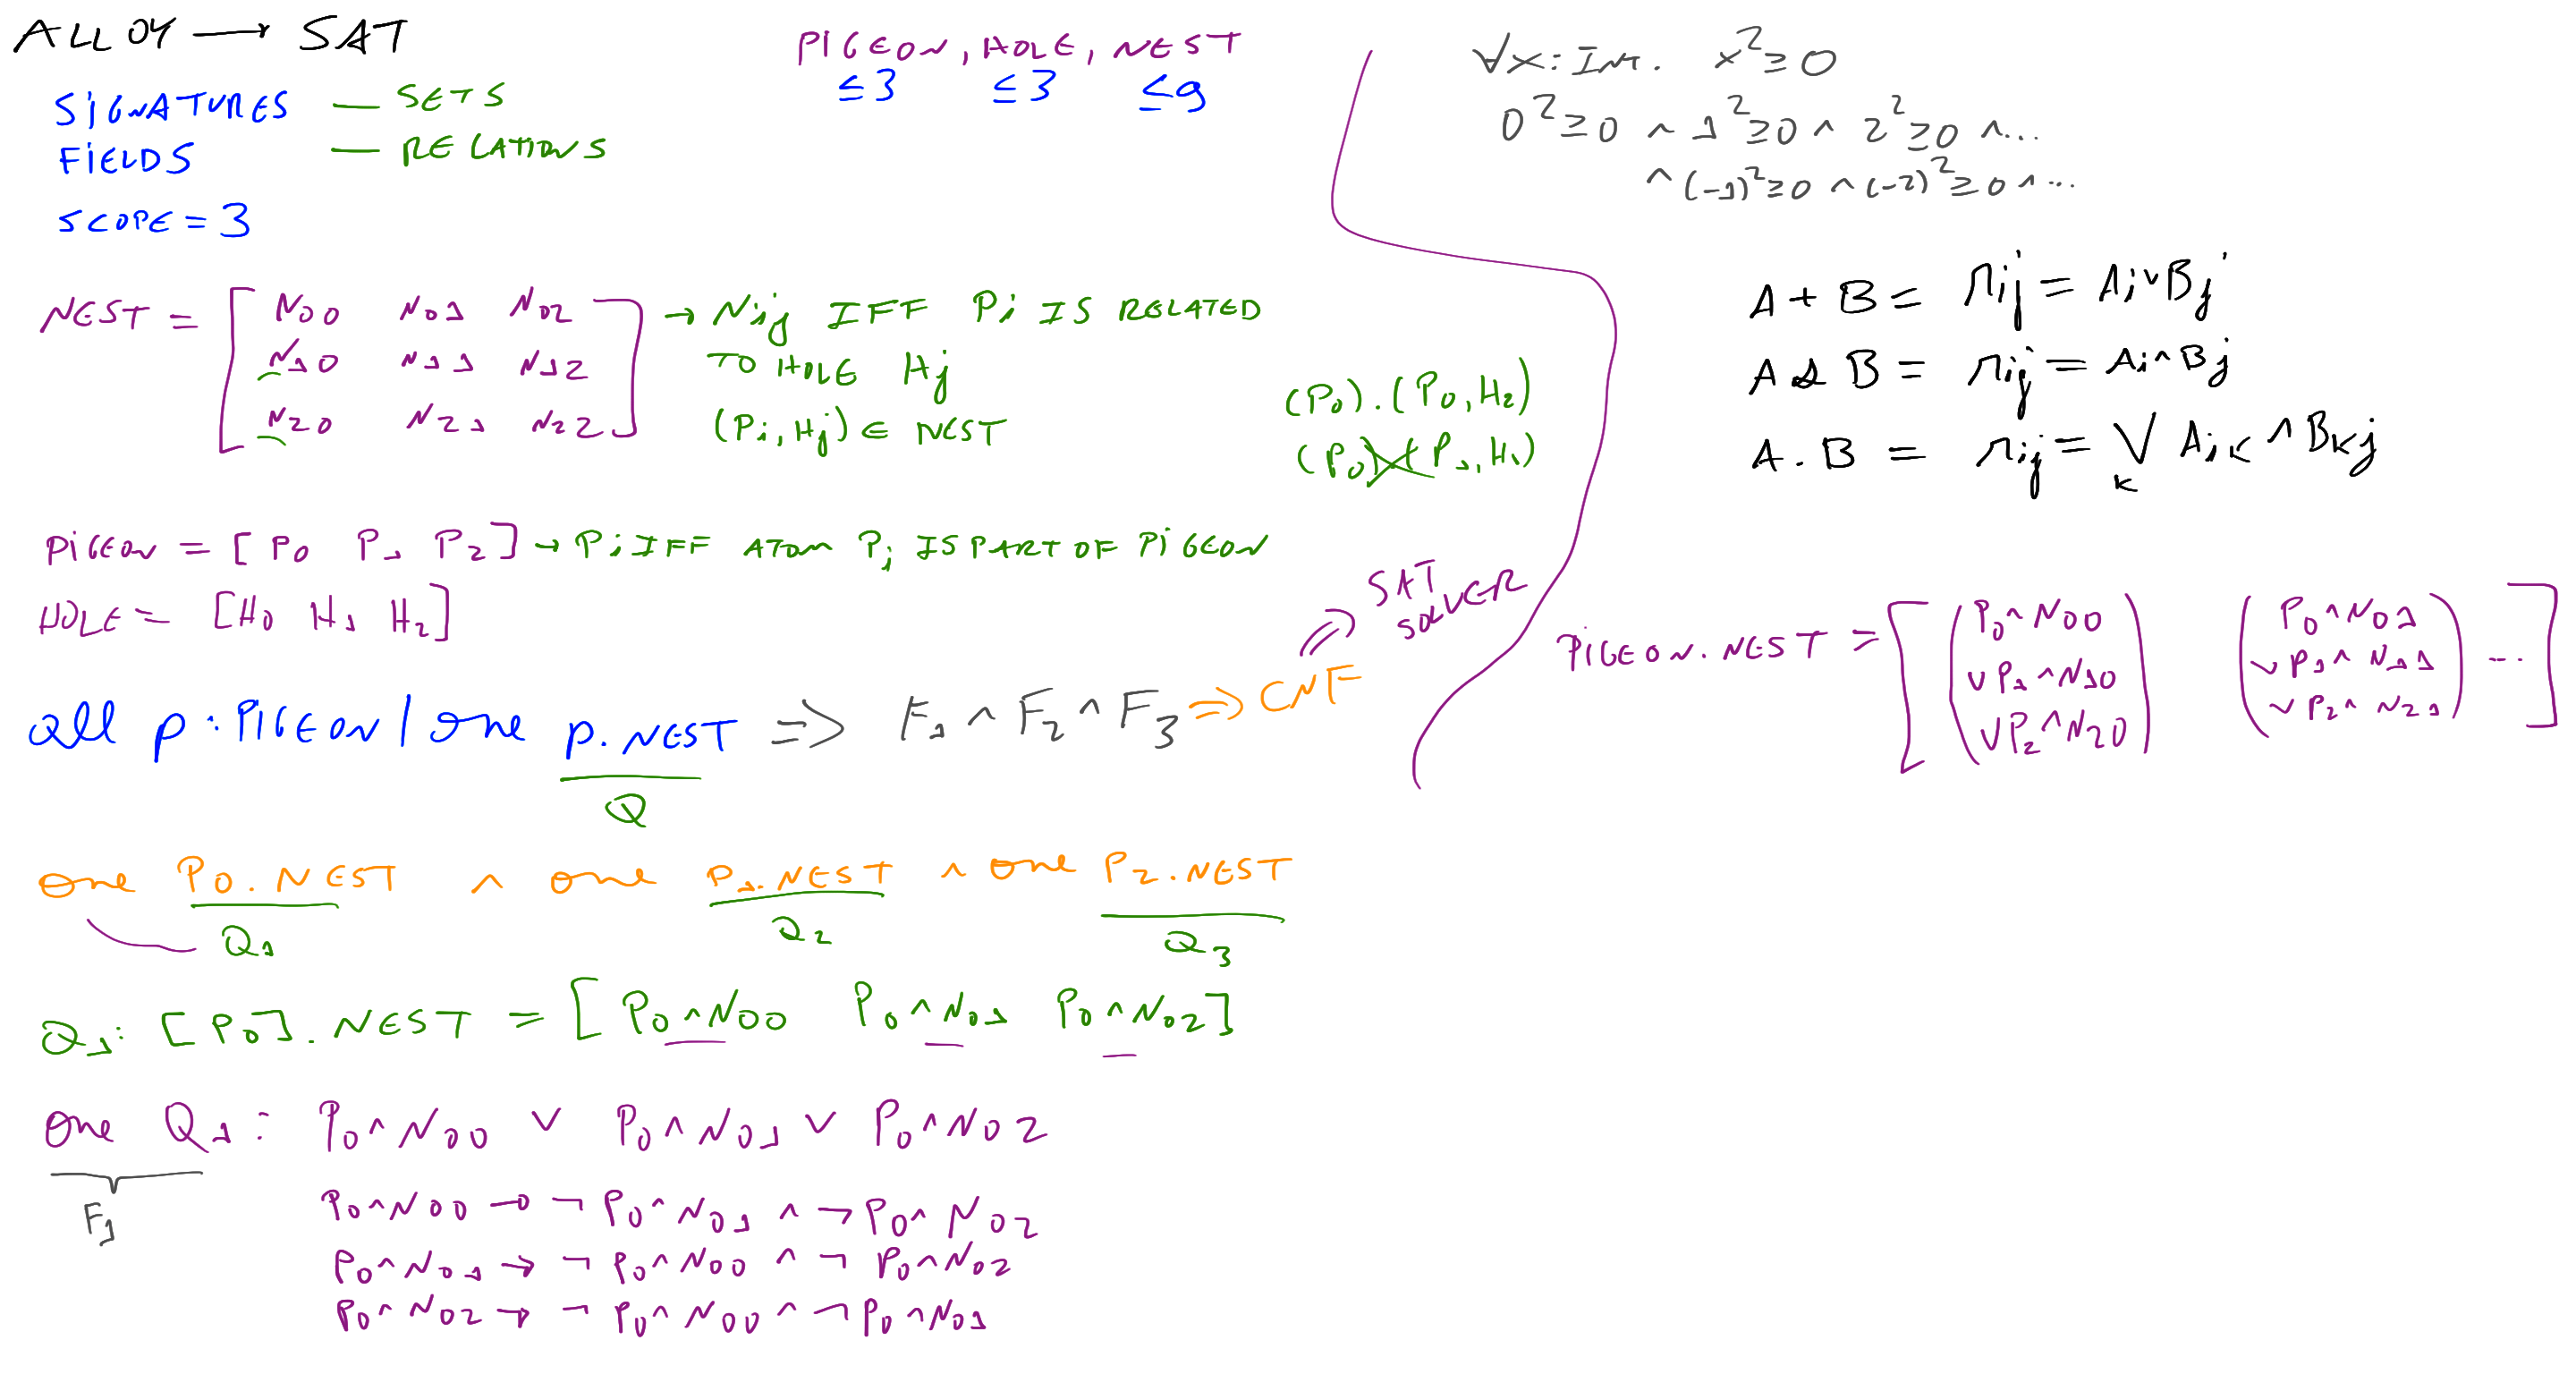 ALLOY → SAT
SIGNATURES — SETS
FIELDS — RELATIONS
SCOPE = 3
PIGEON, HOLE, NEST
≤3 ≤3 ≤9
NEST = [ N00 N01 N02
N10 N11 N12
N20 N21 N22 ]
→ Nij IFF Pi IS RELATED
TO HOLE Hj
(Pi, Hj) ∈ NEST
(P0).(P0, H2)
(P0).(P1, H1)
PIGEON = [ P0 P1 P2 ] → Pi IFF ATOM Pi IS PART OF PIGEON
HOLE = [H0 H1 H2]
all p : PIGEON | one p.NEST => F1 ∧ F2 ∧ F3 => CNF => SAT SOLVER
Q
one P0.NEST ∧ one P1.NEST ∧ one P2.NEST
Q1 Q2 Q3
Q1: [P0].NEST = [ P0∧N00 P0∧N01 P0∧N02 ]
one Q1: P0∧N00 ∨ P0∧N01 ∨ P0∧N02
F1
P0∧N00 → ¬ P0∧N01 ∧ ¬ P0∧N02
P0∧N01 → ¬ P0∧N00 ∧ ¬ P0∧N02
P0∧N02 → ¬ P0∧N00 ∧ ¬ P0∧N01
∀x: INT. x² ≥ 0
0² ≥ 0 ∧ 1² ≥ 0 ∧ 2² ≥ 0 ∧ ...
∧ (-1)² ≥ 0 ∧ (-2)² ≥ 0 ∧ ...
A + B = rij = Ai ∨ Bj
A & B = rij = Ai ∧ Bj
A . B = rij = ⋁k Aik ∧ Bkj
PIGEON.NEST = [ ( P0∧N00 ∨ P1∧N10 ∨ P2∧N20 ) ( P0∧N01 ∨ P1∧N11 ∨ P2∧N21 ) ... ]